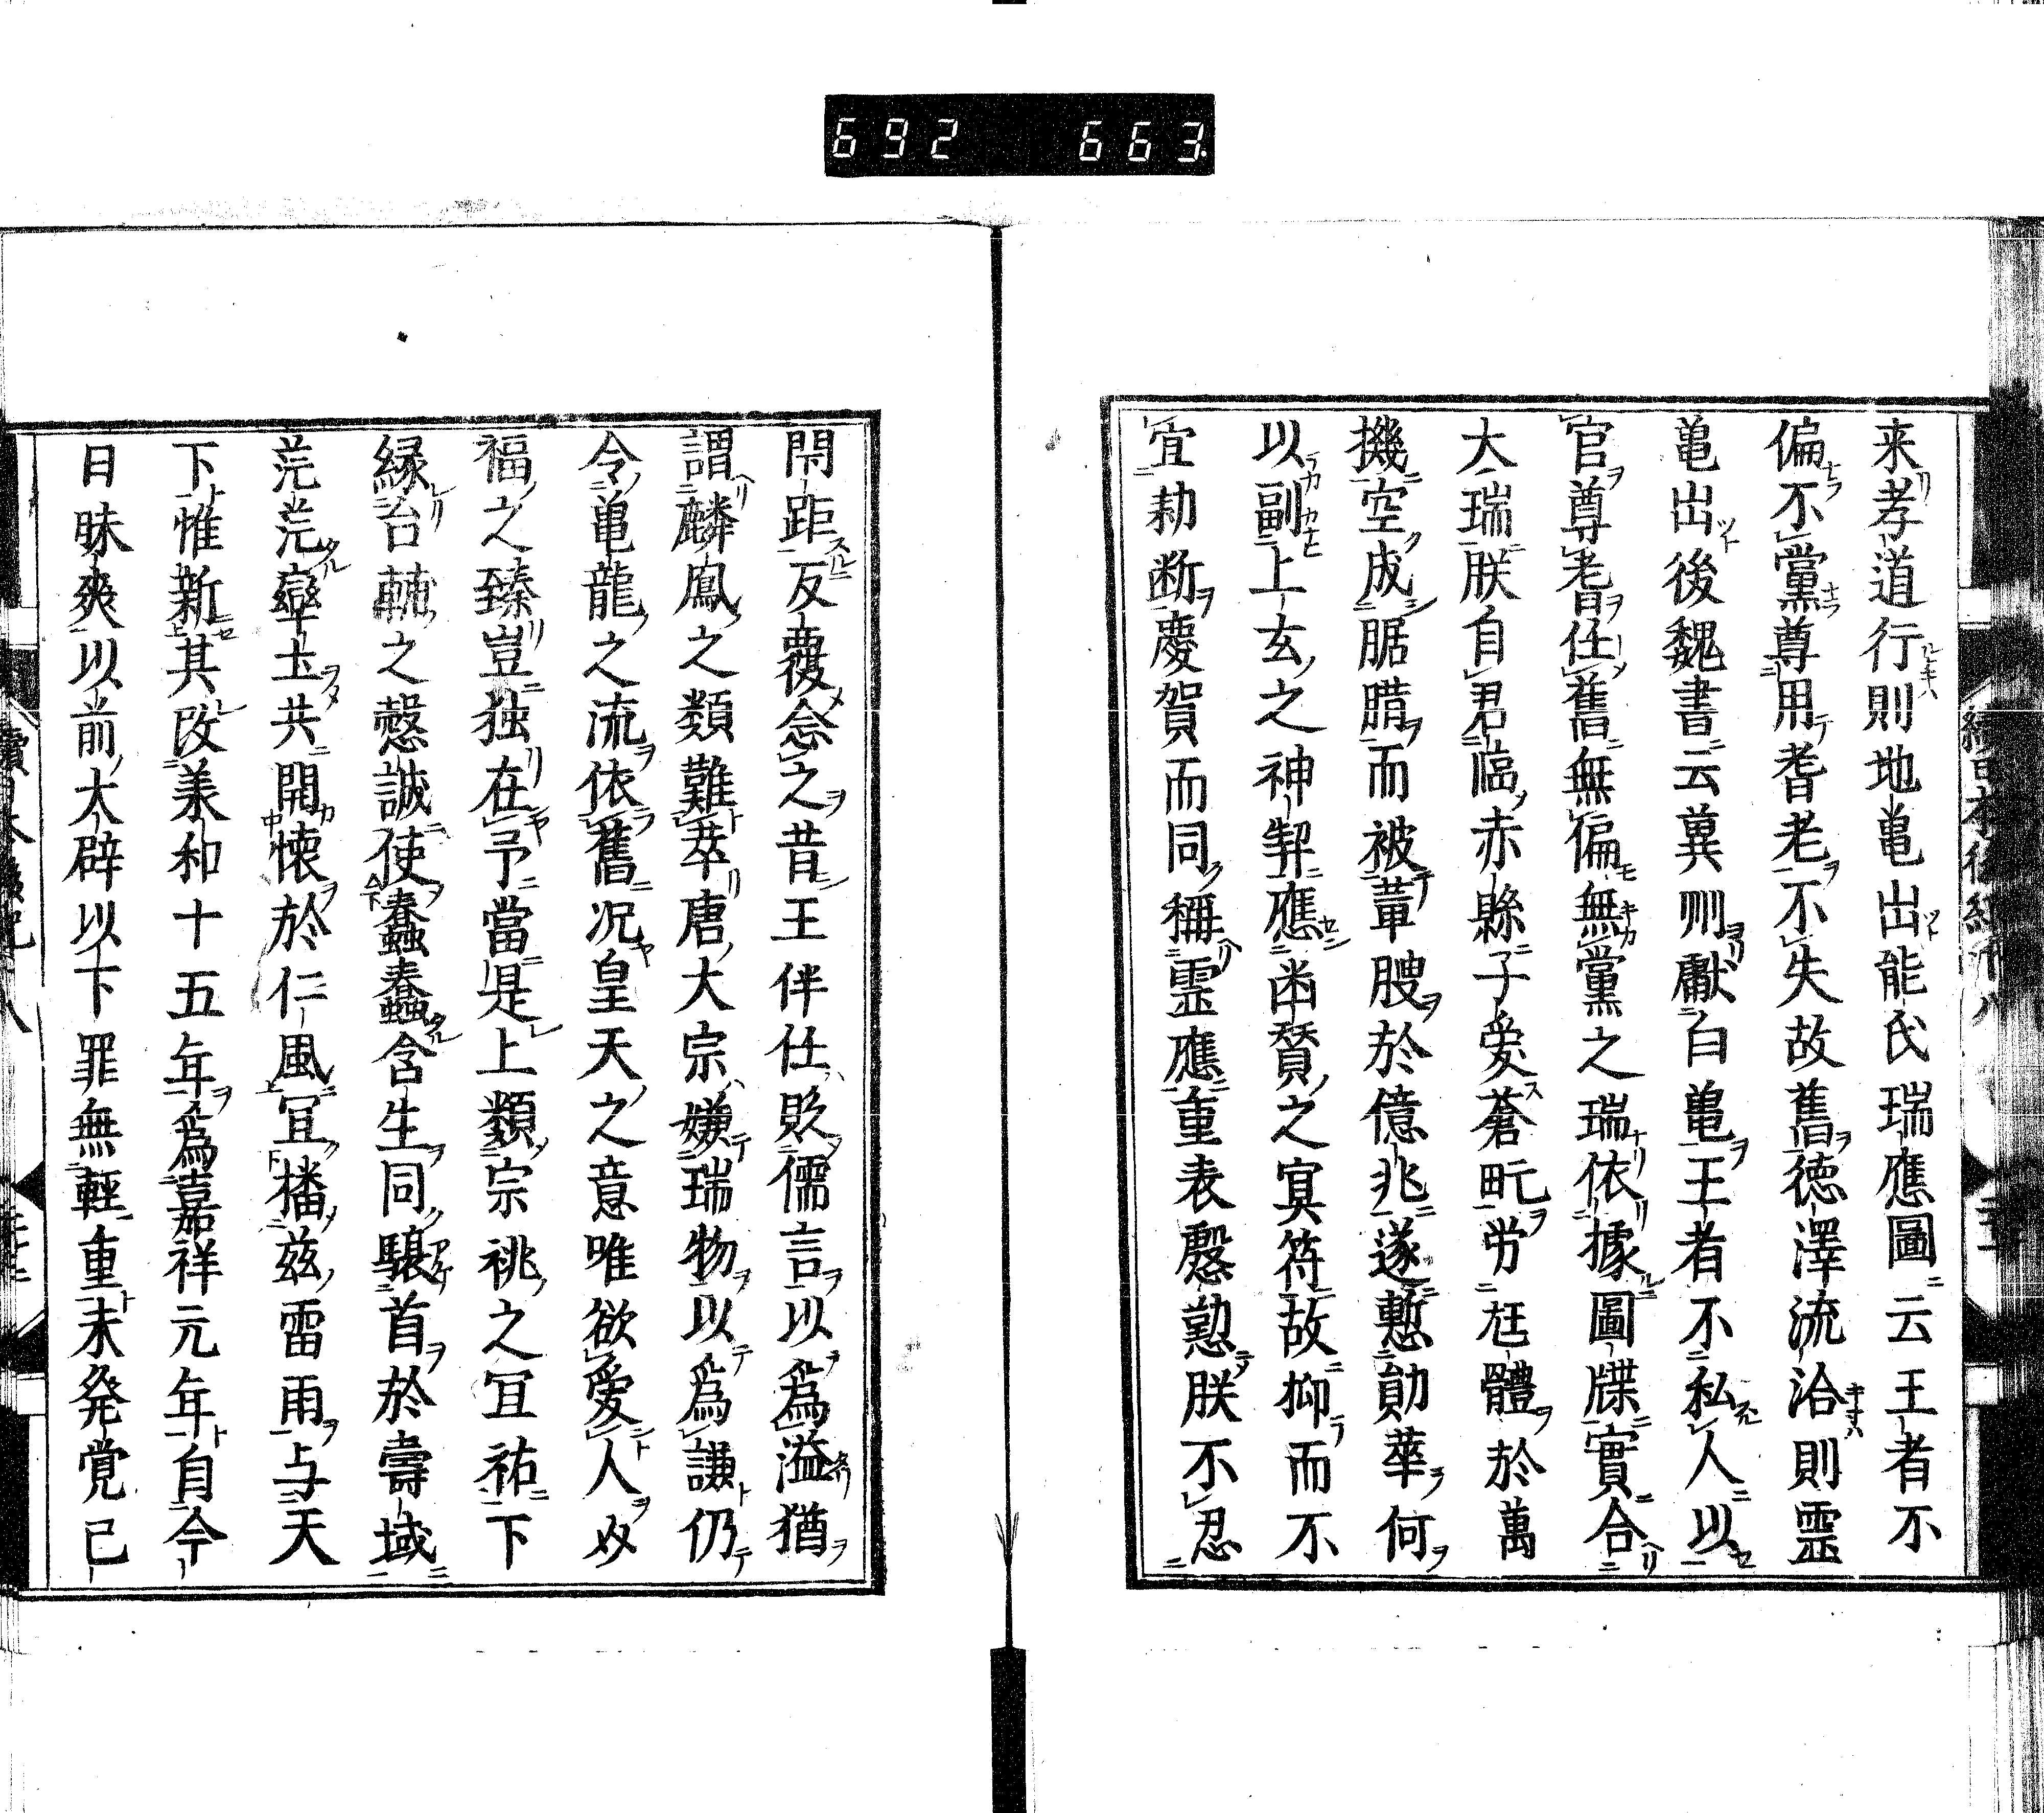 692 663
来孝道行則地亀出能氏瑞應圖云王者不
偏不黨尊用耆老不失故舊徳澤流洽則霊
亀出後魏書云冀州献白亀王者不私人以
官尊耆任舊無偏無黨之瑞依據圖牒實合
大瑞朕自君臨赤縣子愛蒼甿労尩體於萬
機空成腒腊而被葷膄於億兆遂慙勛華何
以副上玄之神契應凾賛之冥符故抑而不
宜勅断慶賀而同稱霊應重表慇懃朕不忍
閇距反覆念之昔王伴仕貶儒言以為溢猶
謂麟鳳之類難萃唐大宗嫌瑞物以為謙仍
令亀龍之流依舊况皇天之意唯欲愛人
福之臻豈独在予當是上類宗祧之冝祐下
縁台輔之慤誠使蠢蠢含生同驤首於壽域
茫茫率土共開懐於仁風冝播茲雷雨与天
下惟新其改羕和十五年為嘉祥元年自今
日昧爽以前大辟以下罪無輕重未発覚已